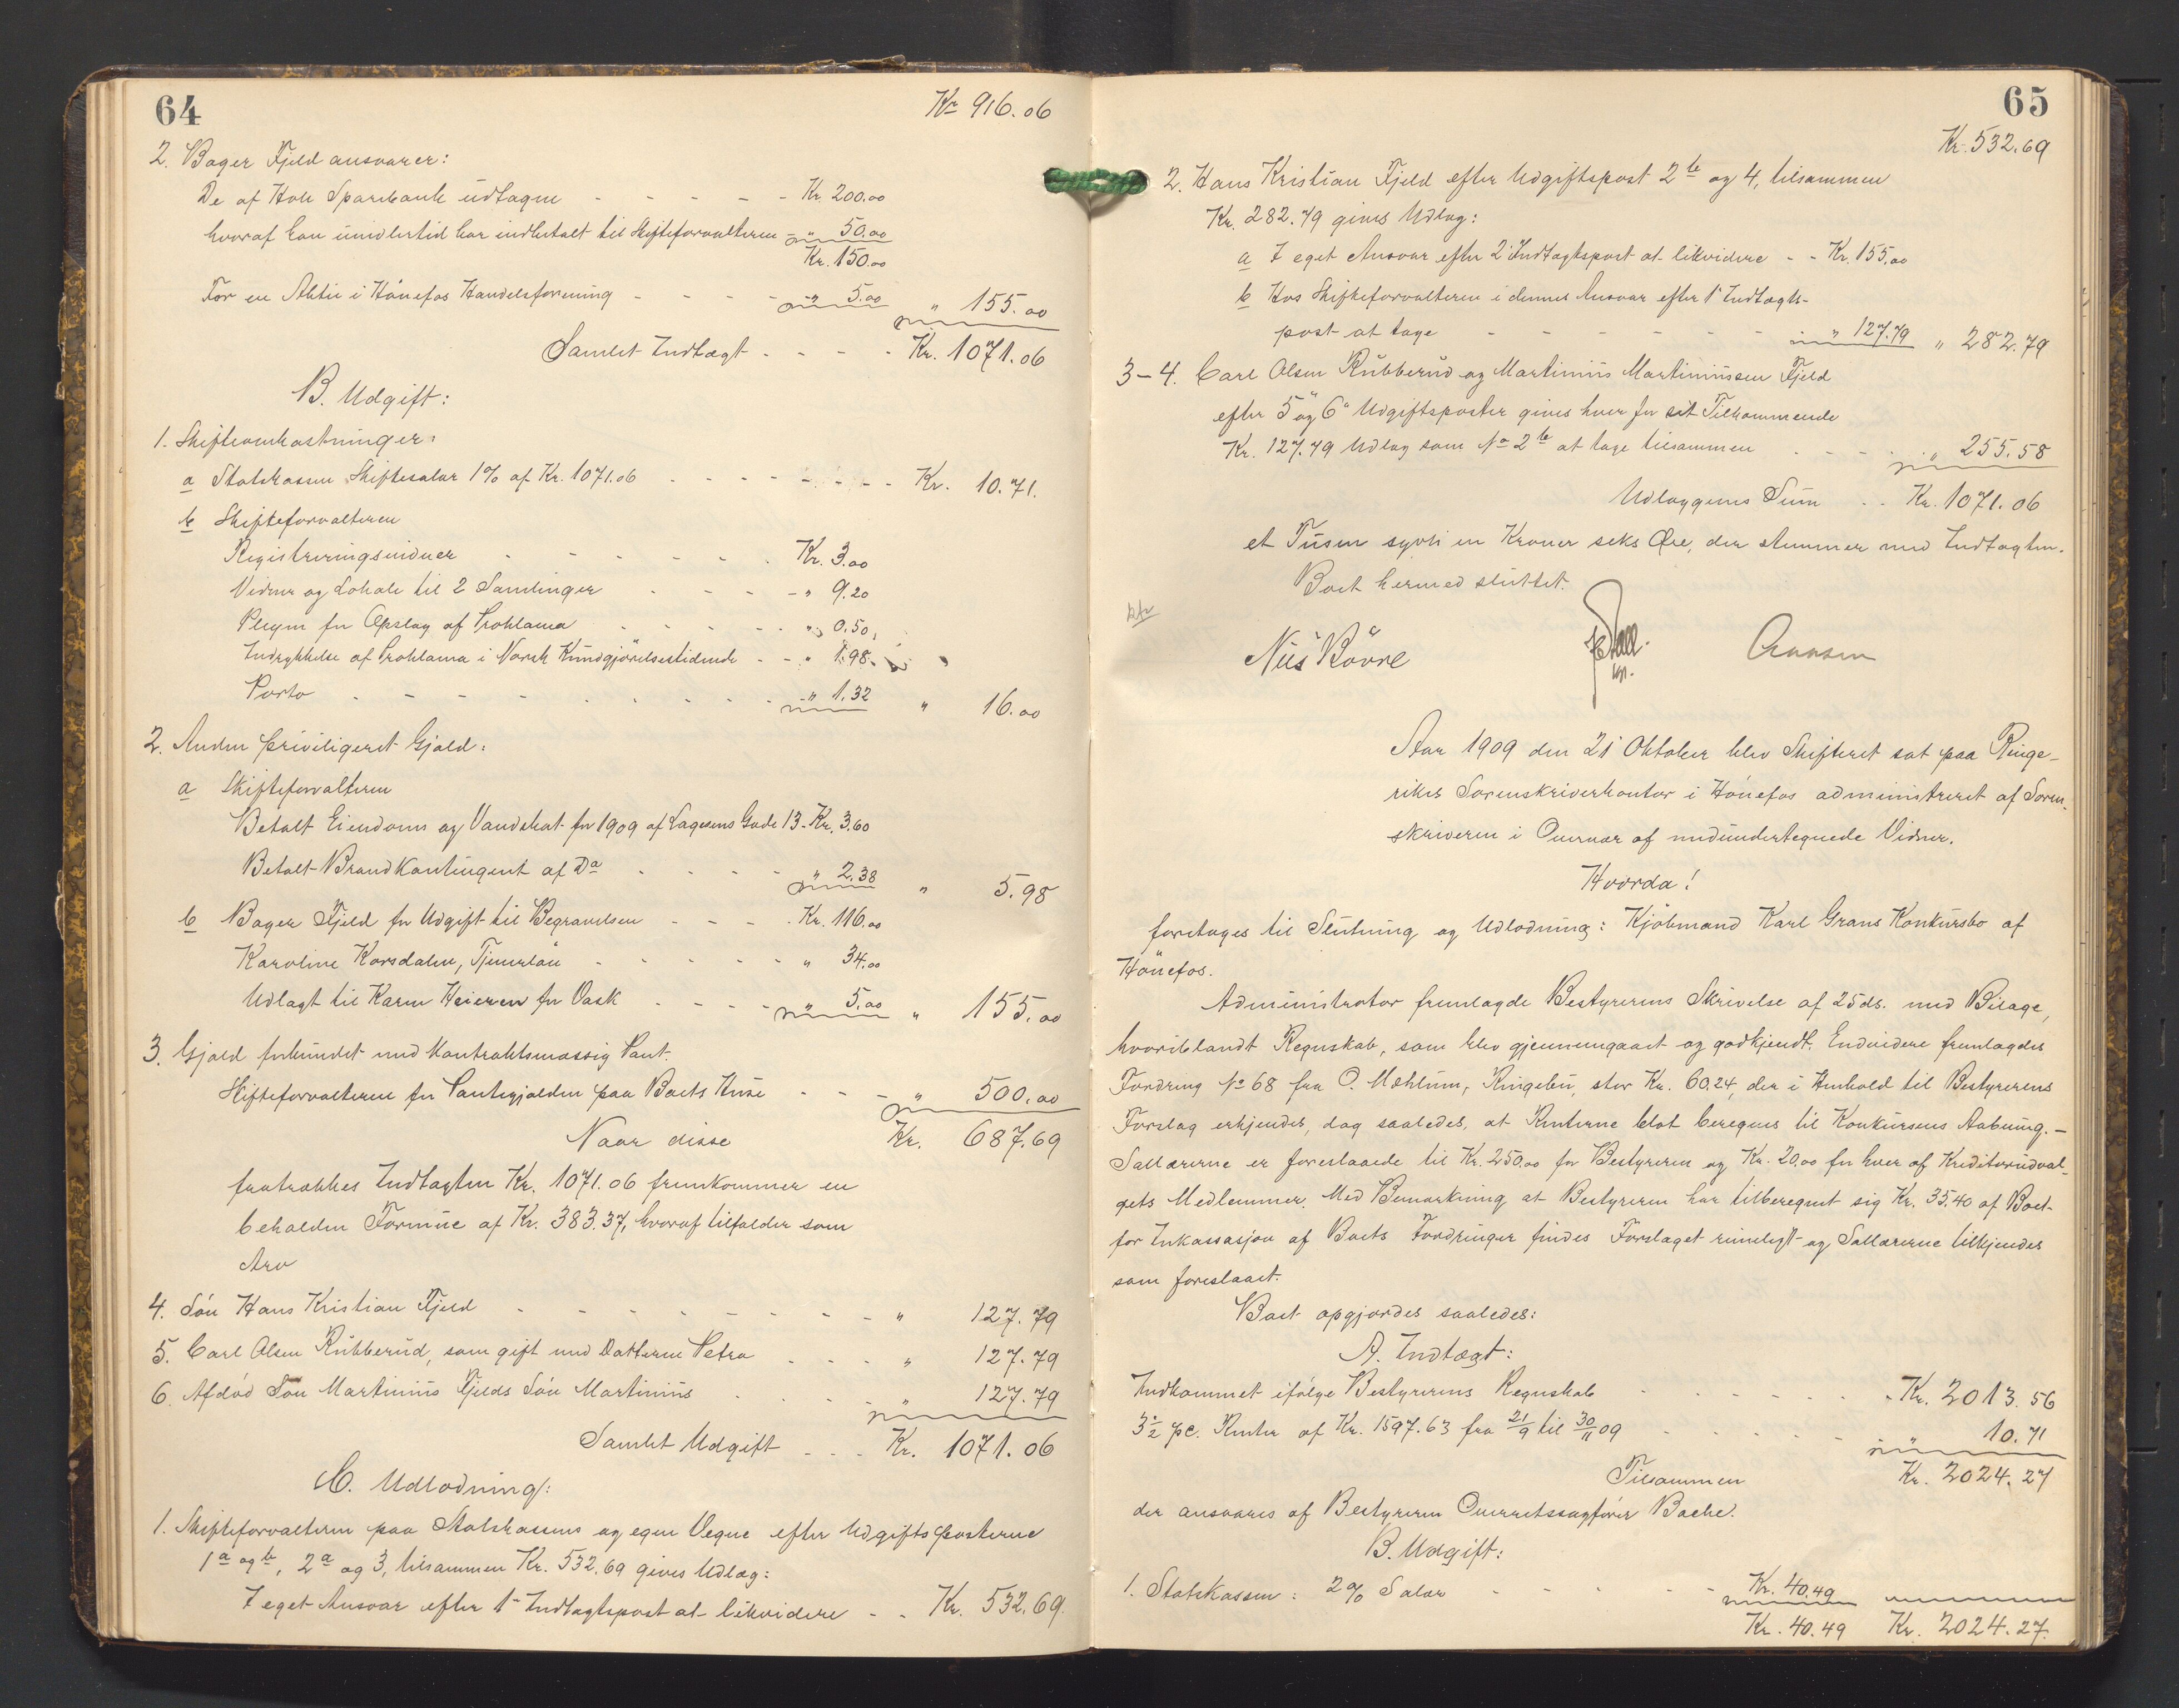 64
Kr 916.06
2. Bager Fjeld ansvarer:
De af Hole Sparebank udtagne - - - - - Kr. 200.00
hvoraf han imidlertid har indbetalt til Skifteforvalteren - " 50.00
Kr. 150.00
For en Aktie i Hönefos Handelsforening - - - - " 5.00 " 155.00
Samlet Indtægt - - - - Kr. 1071.06
B. Udgift:
1. Skifteomkostninger:
a Statskassen Skiftesalær 1% af Kr. 1071.06 - - - - - - - Kr. 10.71.
b Skifteforvalteren
Registreringsvidner - - - - - - Kr. 3.00
Vidner og Lokale til 2 Samlinger - - - - " 9.20
Plugm for Opslag af Proklama - - - - - " 0.50
Indrykkelse af Proklama i Norsk Kundgjørelsestidende - - " 1.98
Porto - - - - - - - - - " 1.32 " 16.00
2. Anden priviligeret Gjæld:
a Skifteforvalteren
Betalt Eiendoms og Vandskat for 1909 af Lagesens Gade 13 - Kr. 3.60
Betalt Brandkontingent af Da - - - - " 2.38 " 5.98
b Bager Fjeld for Udgift til Begravelsen - - - - Kr. 116.00
Karoline Korsdalen, Tjenerløn - - - - - " 34.00
Udlagt til Karen Heieren for Vask - - - - " 5.00 " 155.00
3. Gjæld forbundet med kontraktsmæssig Pant.
Skifteforvalteren for Pantegjælden paa Boets Huse - - - " 500.00
Naar disse Kr. 687.69
fratrækkes Indtægten Kr. 1071.06 fremkommer en
beholden Formue af Kr. 383.37, hvoraf tilfalder som
Arv
4. Sön Hans Kristian Fjeld - - - - - - - - " 127.79
5. Carl Olsen Rübberud, som gift med Datteren Petra - - - " 127.79
6. Afdöd Sön Martinius Fjelds Sön Martinius - - - - " 127.79
Samlet Udgift - - - Kr. 1071.06
C. Udlodning:
1. Skifteforvalteren paa Statskassens og egne Vegne efter Udgiftsposterne
1 a og b, 2 a og 3, tilsammen Kr. 532.69 gives Udlæg:
I eget Ansvar efter 1ste Indtægtspost at likvidere - - Kr. 532.69.
65
Kr. 532.69
2. Hans Kristian Fjeld efter Udgiftspost 2 b og 4, tilsammen
Kr. 282.79 gives Udlæg:
a I eget Ansvar efter 2' Indtægtspost at likvidere - - Kr. 155.00
b Hos Skifteforvalteren i dennes Ansvar efter 1' Indtægts-
post at tage - - - - - - - " 127.79 " 282.79
3-4. Carl Olsen Rübberud og Martinius Martiniussen Fjeld
efter 5' og 6' Udgiftsposter gives hver for sit Tilkommende
Kr. 127.79 Udlæg som No 2 b at tage tilsammen - - - - " 255.58
Udlæggenes Sum - - Kr. 1071.06
et Tusen sytti en Kroner seks Øre, der stemmer med Indtægten.
Boet hermed sluttet.
Nils Bövre
Aar 1909 den 21' Oktober blev Skifteret sat paa Ringe-
rikes Sorenskriverkontor i Hönefos administreret af Soren-
skriveren i Overvær af medundertegnede Vidner.
Hvorda!
foretoges til Slutning og Udlodning: Kjöbmand Karl Grans Konkursbo af
Hönefos.
Administrator fremlagde Bestyrerens Skrivelse af 25 ds. med Bilage,
hvoriblandt Regnskab, som blev gjennemgaaet og godkjendt. Endvidere fremlagdes
Fordring No 68 fra O. Mæhlum, Ringebu, stor Kr. 60.24, der i Henhold til Bestyrerens
Forslag erkjendes, dog saaledes, at Renterne blot beregnes til Konkursens Aabning. -
Salærerne er foreslaaede til Kr. 250.00 for Bestyreren og Kr. 20.00 for hver af Kreditorudval-
gets Medlemmer. Med Bemærkning at Bestyreren har tilberegnet sig Kr. 35.40 af Boet
for Inkassasjon af Boets Fordringer findes Forslaget rimeligt og Salærerne tilkjendes
som foreslaaet.
Boet opgjordes saaledes:
A. Indtægt:
Indkommet ifölge Bestyrerens Regnskab - - - - - - Kr. 2013.56
3 1/2 pc. Renter af Kr. 1597.63 fra 21/9 til 30/11 09 - - - - - " 10.71
Tilsammen Kr. 2024.27
der ansvares af Bestyreren Overretssagförer Bache.
B. Udgift:
1. Statskassen: 2% Salær - - - - - Kr. 40.49
Kr. 40.49 Kr. 2024.27.